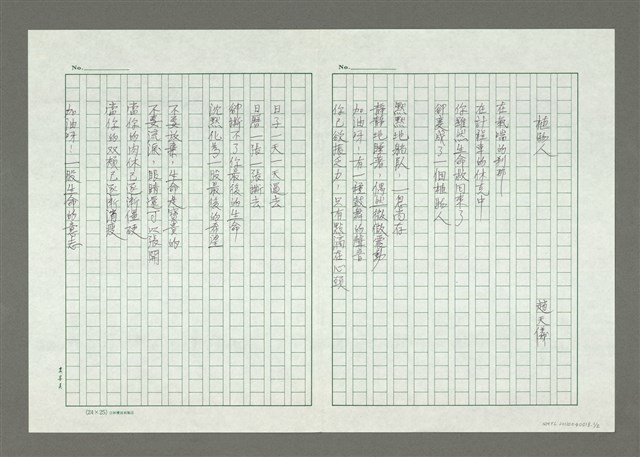 No.
植物人
趙天儀
在氣爆的刹那
在計程車的火光中
你雖然生命救回來了
卻變成了一個植物人
默默地躺臥,一息尚存
靜靜地睡著,偶然微微震動
加油呀!有一種鼓舞的聲音
你已欲振乏力,只有點滴在心頭
No.
日子一天一天過去
日曆一張一張撕去
卻撕不了你最後的生命
沈默化為一股最後的希望
不要放棄,生命是寶貴的
不要流淚,眼睛還可以張開
當你的肉体已逐漸僵硬
當你的双頰已逐漸消瘦
加油呀!一股生命的意志
(24×25)